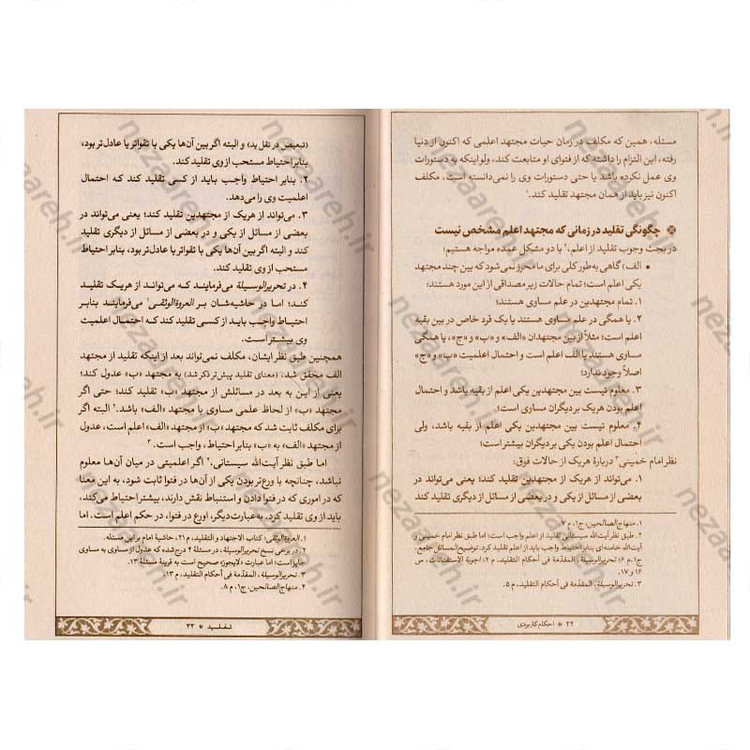 مسئله، همین که مکلف در زمان حیات مجتهد اعلمی که اکنون از دنیا
رفته، این التزام را داشته که از فتوای او متابعت کند، ولو اینکه به دستورات
وی عمل نکرده باشد یا حتی دستورات وی را نمی‌دانسته است، مکلف
اکنون نیز باید از همان مجتهد تقلید کند.۱
چگونگی تقلید در زمانی که مجتهد اعلم مشخص نیست
در بحث وجوب تقلید از اعلم،۲ با دو مشکل عمده مواجه هستیم:
• الف) گاهی به‌طور کلی برای ما محرز نمی‌شود که بین چند مجتهد
یکی اعلم است؛ تمام حالات زیر مصداقی از این مورد هستند:
۱. تمام مجتهدین در علم مساوی هستند؛
۲. یا همگی در علم مساوی هستند یا یک فرد خاص در بین بقیه
اعلم است؛ مثلاً از بین مجتهدان «الف» و «ب» و «ج»، یا همگی
مساوی هستند یا الف اعلم است و احتمال اعلمیت «ب» و «ج»
اصلاً وجود ندارد؛
۳. معلوم نیست بین مجتهدین یکی اعلم از بقیه باشد و احتمال
اعلم بودن هر یک بر دیگران مساوی است؛
۴. معلوم نیست بین مجتهدین یکی اعلم از بقیه باشد، ولی
احتمال اعلم بودن یکی بر دیگران بیشتر است؛
نظر امام خمینی۳ دربارهٔ هر یک از حالات فوق:
۱. می‌تواند از هریک از مجتهدین تقلید کند؛ یعنی می‌تواند در
بعضی از مسائل از یکی و در بعضی از مسائل از دیگری تقلید کند
۱. منهاج‌الصالحین، ج۱، م ۷.
۲. طبق نظر آیت‌الله سیستانی تقلید از اعلم واجب است؛ اما طبق نظر امام خمینی و
آیت‌الله خامنه‌ای بنابر احتیاط واجب باید از اعلم تقلید کرد. توضیح‌المسائل جامع،
ج۱، م ۶؛ تحریرالوسیلة، المقدّمة فی أحکام التقلید، م ۱۲؛ اجوبة الاستفتائات، س
۱۶ و ۱۷.
۳. تحریرالوسیلة، المقدّمة فی أحکام التقلید، م ۵.
۲۲ * احکام کاربردی
(تبعیض در تقلید) و البته اگر بین آن‌ها یکی با تقواتر یا عادل‌تر بود،
بنابر احتیاط مستحب از وی تقلید کند.
۲. بنابر احتیاط واجب باید از کسی تقلید کند که احتمال
اعلمیت وی را می‌دهد.
۳. می‌تواند از هریک از مجتهدین تقلید کند؛ یعنی می‌تواند در
بعضی از مسائل از یکی و در بعضی از مسائل از دیگری تقلید
کند و البته اگر بین آن‌ها یکی با تقواتر یا عادل‌تر بود، بنابر احتیاط
مستحب از وی تقلید کند.
۴. در تحریرالوسیلة می‌فرمایند که می‌تواند از هریک تقلید
کند؛ اما در حاشیه‌شان بر العروة الوثقی۱ می‌فرمایند بنابر
احتیاط واجب باید از کسی تقلید کند که احتمال اعلمیت
وی بیشتر است.
همچنین طبق نظر ایشان، مکلف نمی‌تواند بعد از اینکه تقلید از مجتهد
الف محقق شد، (معنای تقلید پیش‌تر ذکر شد) به مجتهد «ب» عدول کند؛
یعنی از این به بعد در مسائلش از مجتهد «ب» تقلید کند؛ حتی اگر
مجتهد «ب» از لحاظ علمی مساوی با مجتهد «الف» باشد.۲ البته اگر
برای مکلف ثابت شد که مجتهد «ب» از مجتهد «الف» اعلم است، عدول
از مجتهد «الف» به «ب» بنابر احتیاط، واجب است.۳
اما طبق نظر آیت‌الله سیستانی،۴ اگر اعلمیتی در میان آن‌ها معلوم
نباشد، چنانچه با ورع‌تر بودن یکی از آن‌ها در فتوا ثابت شود، به این معنا
که در اموری که در فتوا دادن و استنباط نقش دارند، بیشتر احتیاط می‌کند،
باید از وی تقلید کرد. به عبارت دیگر، اورع در فتوا، در حکم اعلم است. اما
۱. العروة الوثقی؛ کتاب الاجتهاد و التقلید، م ۲۱، حاشیهٔ امام بر این مسئله.
۲. در برخی نسخ تحریرالوسیلة، در مسئلهٔ ۴ درج شده که عدول از مساوی به مساوی
جایز است؛ اما عبارت «لایجوز» صحیح است به قرینهٔ مسئلهٔ ۱۳.
۳. تحریرالوسیلة، المقدّمة فی أحکام التقلید، م ۱۳.
۴. منهاج‌الصالحین، ج۱، م ۸.
تقلید * ۲۳
nezaareh.ir